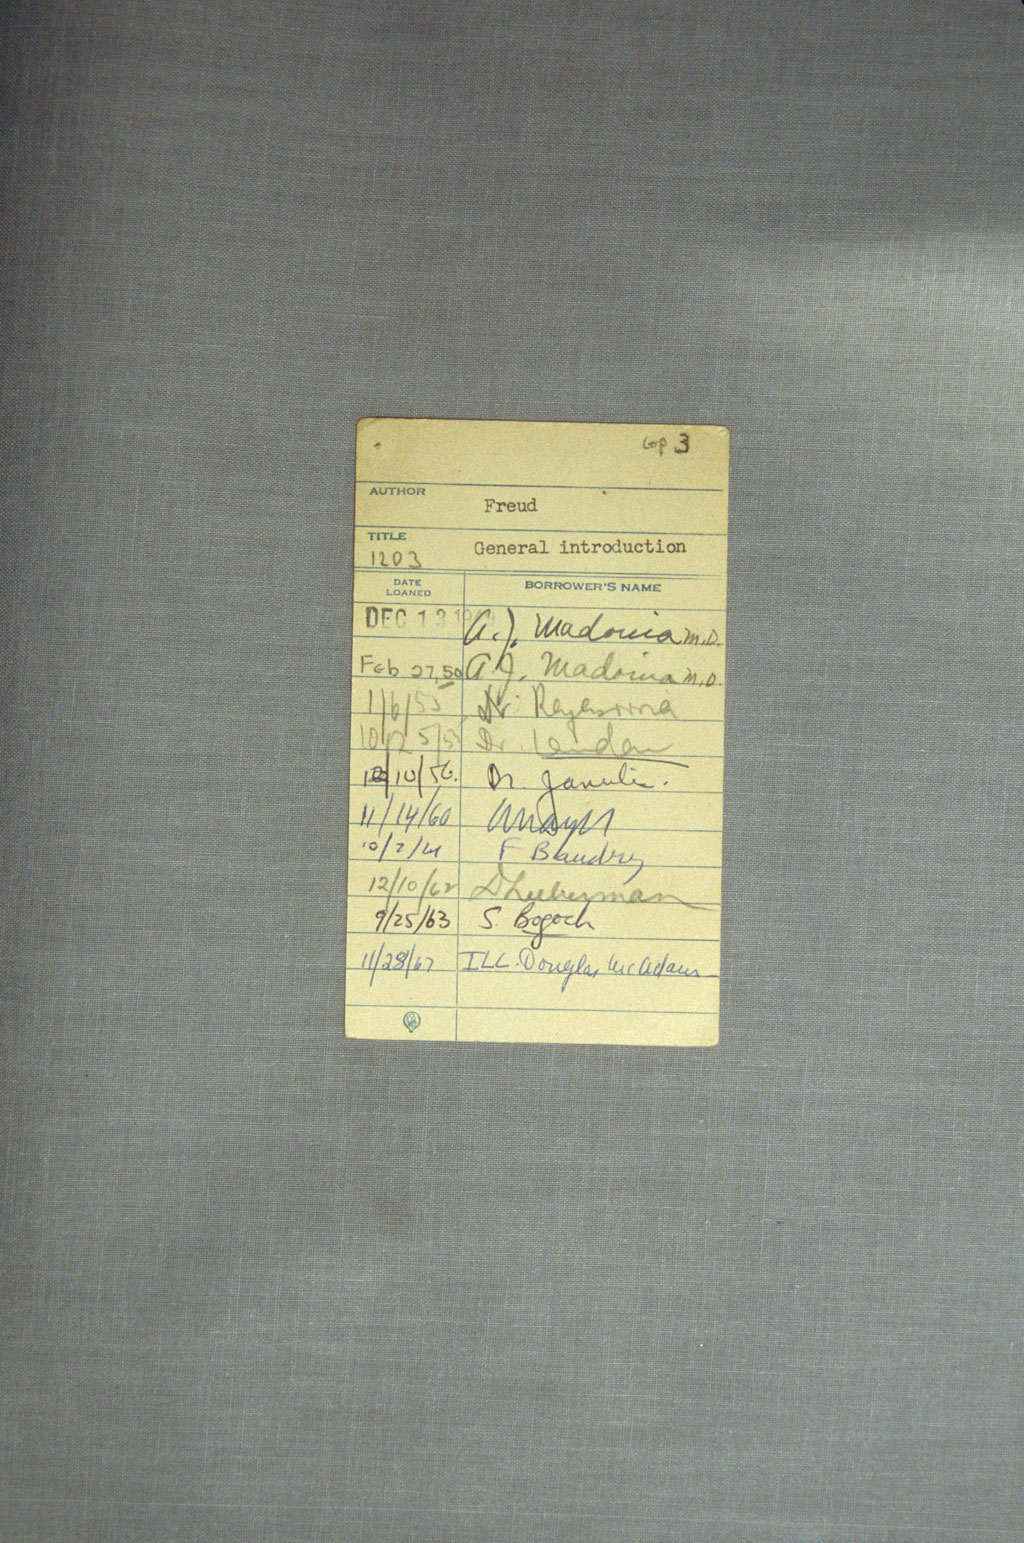 Cop 3
AUTHOR Freud
TITLE General introduction
1203
DATE LOANED BORROWER'S NAME
DEC 13 A. J. Madonia M.D.
Feb 27, 50 A J. Madonia M.D.
1/6/55 Dr.
10/25/55 Dr. Landau
10/56. Dr. Janulis.
11/14/60
10/2/61 F Baudry
12/10/62 D Lieberman
9/25/63 S. Bogoch
11/28/67 ILL. Douglas McAdams